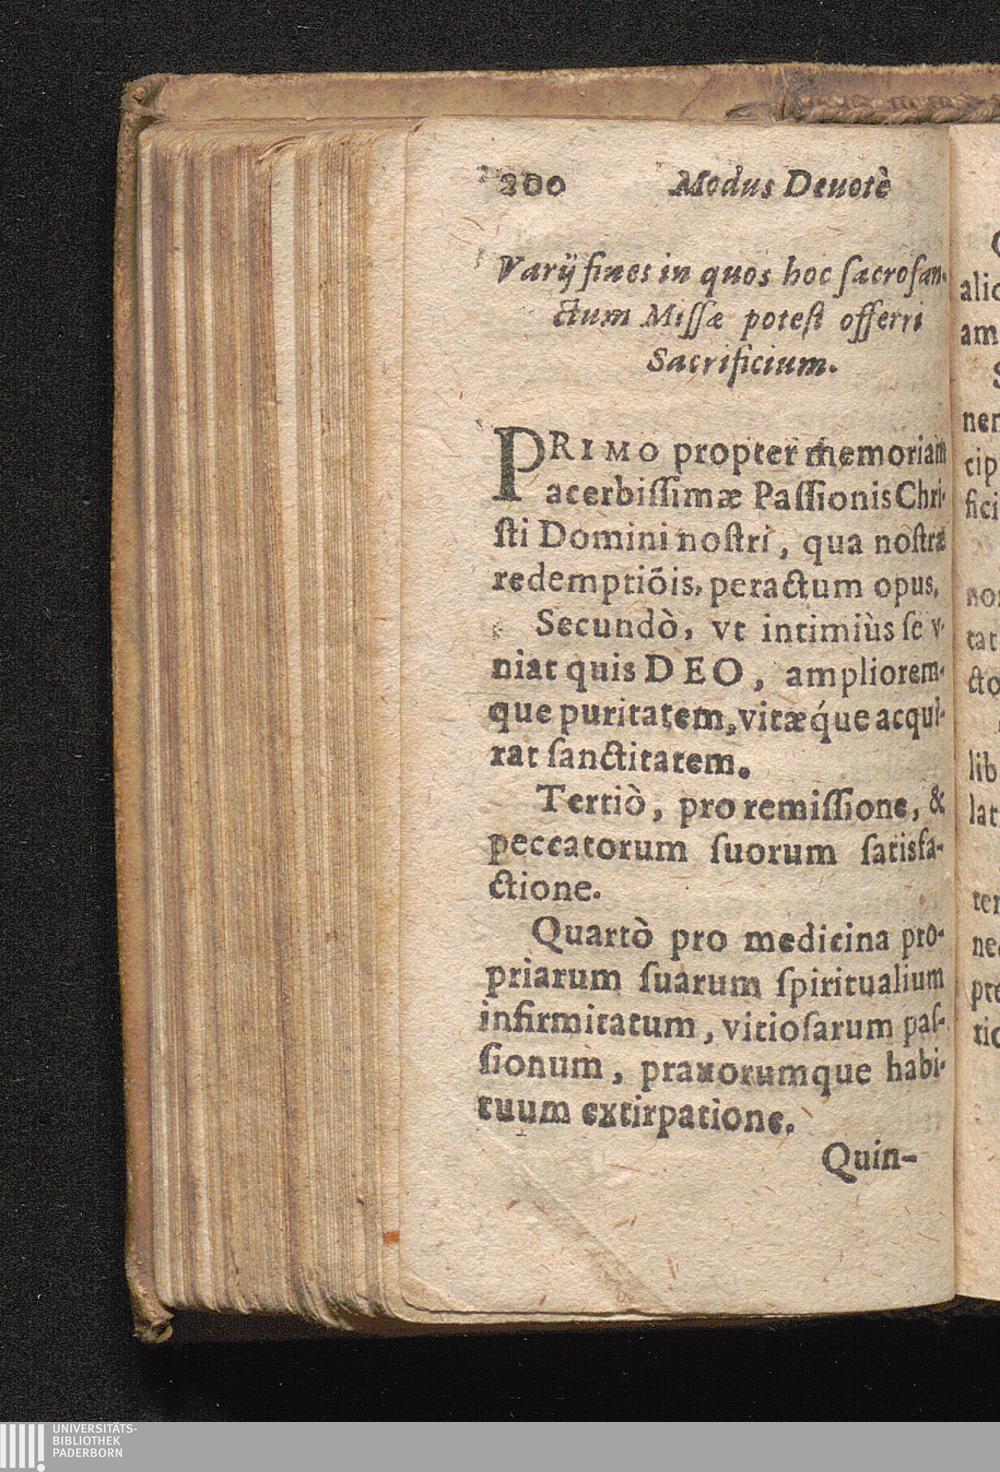 200 Modus Deuotè
Varij fines in quos hoc sacrosan-
ctum Missæ potest offerri
Sacrificium.
PRIMO propter memoriam
acerbissimæ Passionis Chri-
sti Domini nostri, qua nostræ
redemptiõis, peractum opus,
Secundò, vt intimiùs se v-
niat quis DEO, ampliorem-
que puritatem, vitæq́ue acqui-
rat sanctitatem.
Tertiò, pro remissione, &
peccatorum suorum satisfa-
ctione.
Quartò pro medicina pro-
priarum suarum spiritualium
infirmitatum, vitiosarum pas-
sionum, prauorumque habi-
tuum extirpatione.
Quin-
alic
am
ner
cip
fici
nor
tat
cto
lib
lat
ter
nec
pro
tio
UNIVERSITÄTS-
BIBLIOTHEK
PADERBORN